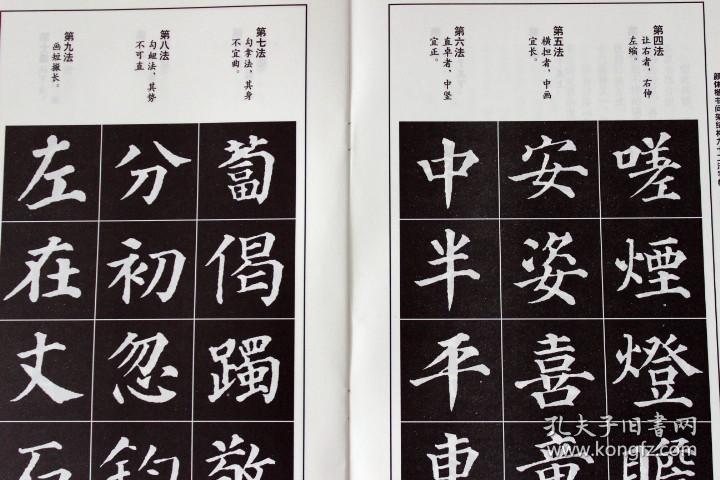 第四法
让右者，右伸
左缩。
第五法
横担者，中画
宜长。
第六法
直卓者，中竖
宜正。
嗟
煙
燈
瞻
安
姿
喜
童
中
半
平
車
第七法
勾拿法，其身
不宜曲。
第八法
勾䄂法，其势
不可直
第九法
画短撇长。
蔔
偈
躅
敬
分
初
忽
鈞
左
在
丈
石
孔夫子旧書网
www.kongfz.com